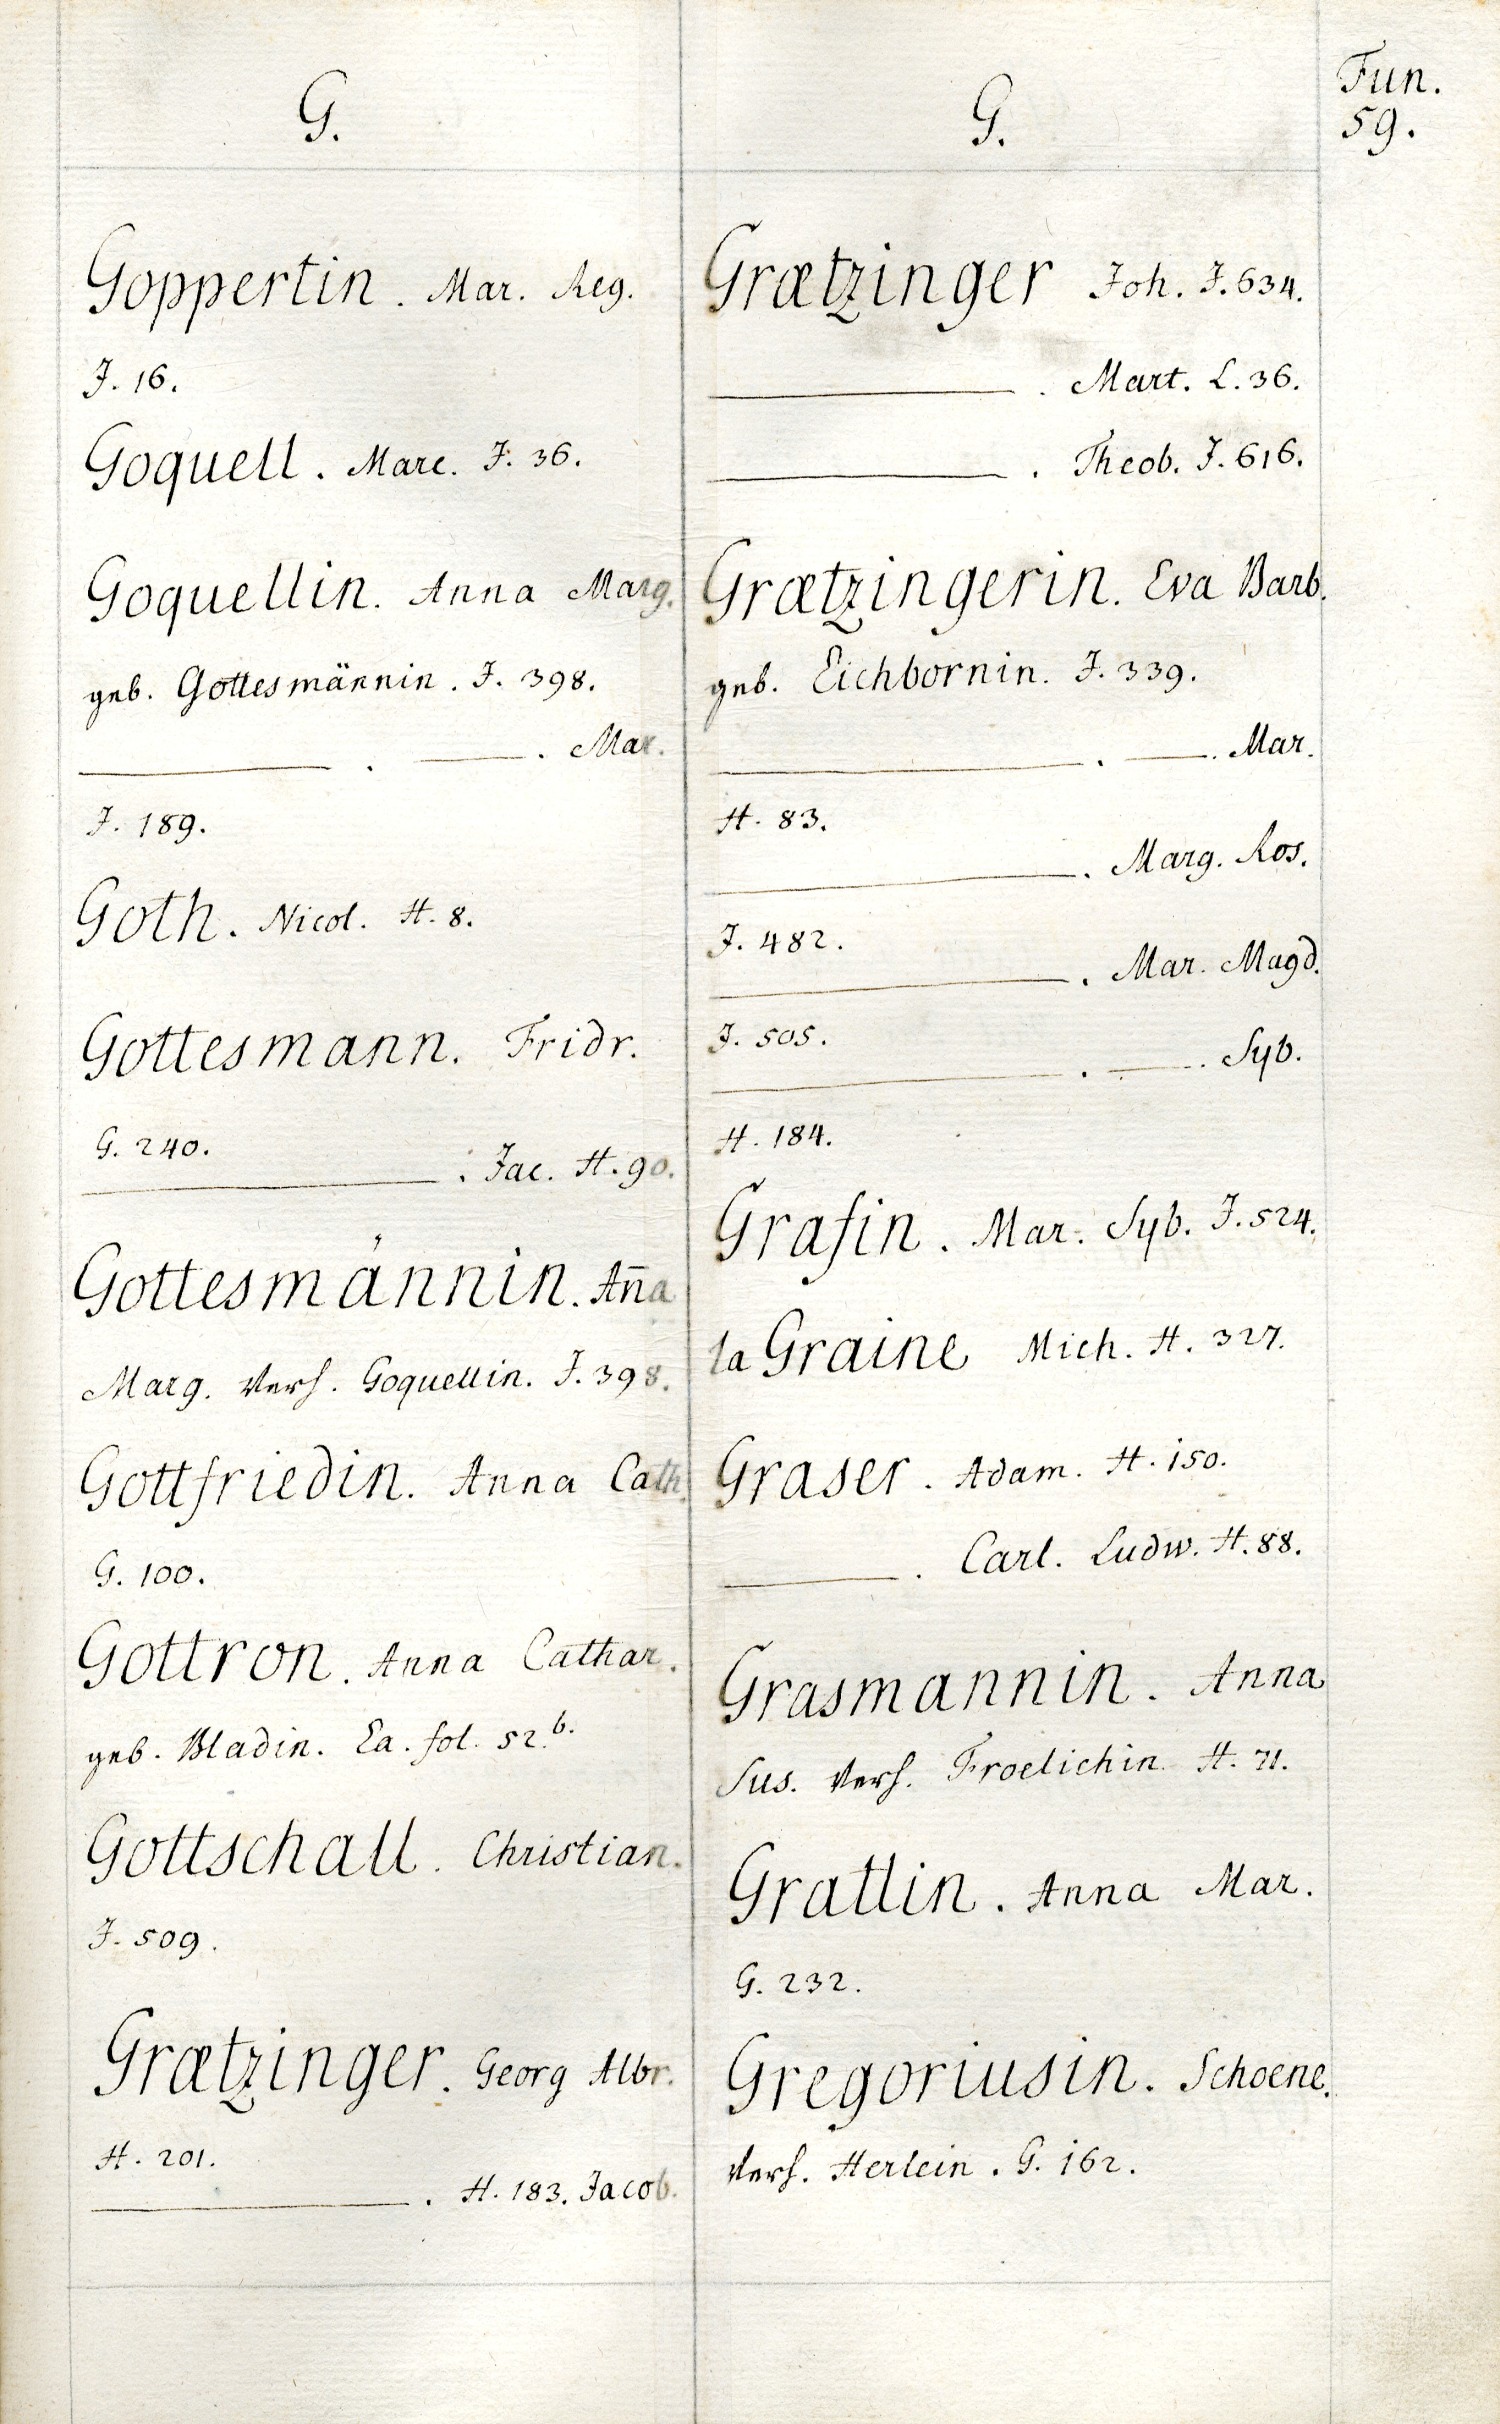 Fun.
59.
G.
Goppertin. Mar. Reg.
J. 16.
Goquell. Marc. J. 36.
Goquellin. Anna Marg.
geb. Gottesmännin. J. 398.
——— . ——— . Mar.
J. 189.
Goth. Nicol. H. 8.
Gottesmann. Fridr.
G. 240.
——— . Jac. H. 90.
Gottesmännin. Aña
Marg. Verh. Goquellin. J. 398.
Gottfriedin. Anna Cath.
G. 100.
Gottron. Anna Cathar.
geb. Bladin. Ea. fol. 52.b.
Gottschall. Christian.
J. 509.
Grætzinger. Georg Albr.
H. 201.
——— . H. 183. Jacob.
G.
Grætzinger Joh. J. 634.
——— . Mart. L. 36.
——— . Theob. J. 616.
Grætzingerin. Eva Barb.
geb. Eichbornin. J. 339.
——— . ——— . Mar.
H. 83.
——— . Marg. Ros.
J. 482.
——— . Mar. Magd.
J. 505.
——— . ——— . Syb.
H. 184.
Grafin. Mar. Syb. J. 524.
la Graine Mich. H. 327.
Graser. Adam. H. 150.
——— . Carl. Ludw. H. 88.
Grasmannin. Anna
Sus. Verh. Froelichin. H. 71.
Gratlin. Anna Mar.
G. 232.
Gregoriusin. Schoene.
Verh. Herlein. G. 162.